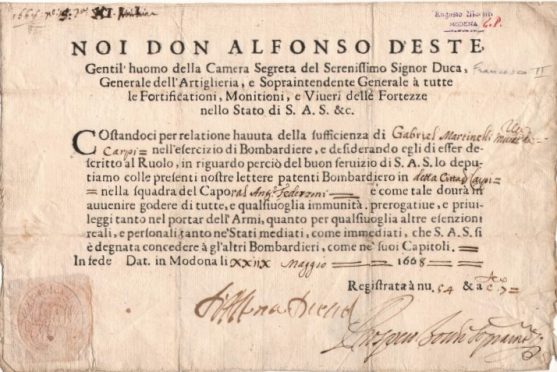 MODENA
NOI DON ALFONSO D'ESTE,
Gentil'huomo della Camera Segreta del Serenissimo Signor Duca,
Generale dell'Artiglieria, e Sopraintendente Generale à tutte
le Fortificationi, Monitioni, e Viueri delle Fortezze
nello Stato di S. A. S. &c.
COstandoci per relatione hauuta della sufficienza di Gabriel Martinelli
Carpi nell'esercizio di Bombardiere, e desiderando egli di esser de-
scritto al Ruolo, in riguardo perciò del buon seruizio di S. A. S. lo depu-
tiamo colle presenti nostre lettere patenti Bombardiero in
nella squadra del Caporal e come tale dourà in
auuenire godere di tutte, e qualsiuoglia immunità, prerogatiue, e priui-
leggi tanto nel portar dell'Armi, quanto per qualsiuoglia altre esenzioni
reali, e personali tanto ne'Stati mediati, come immediati, che S. A. S. si
è degnata concedere à gl'altri Bombardieri, come ne' suoi Capitoli.
In fede Dat. in Modona li Maggio 1668
Registrata à nu. 54 & a c. 7